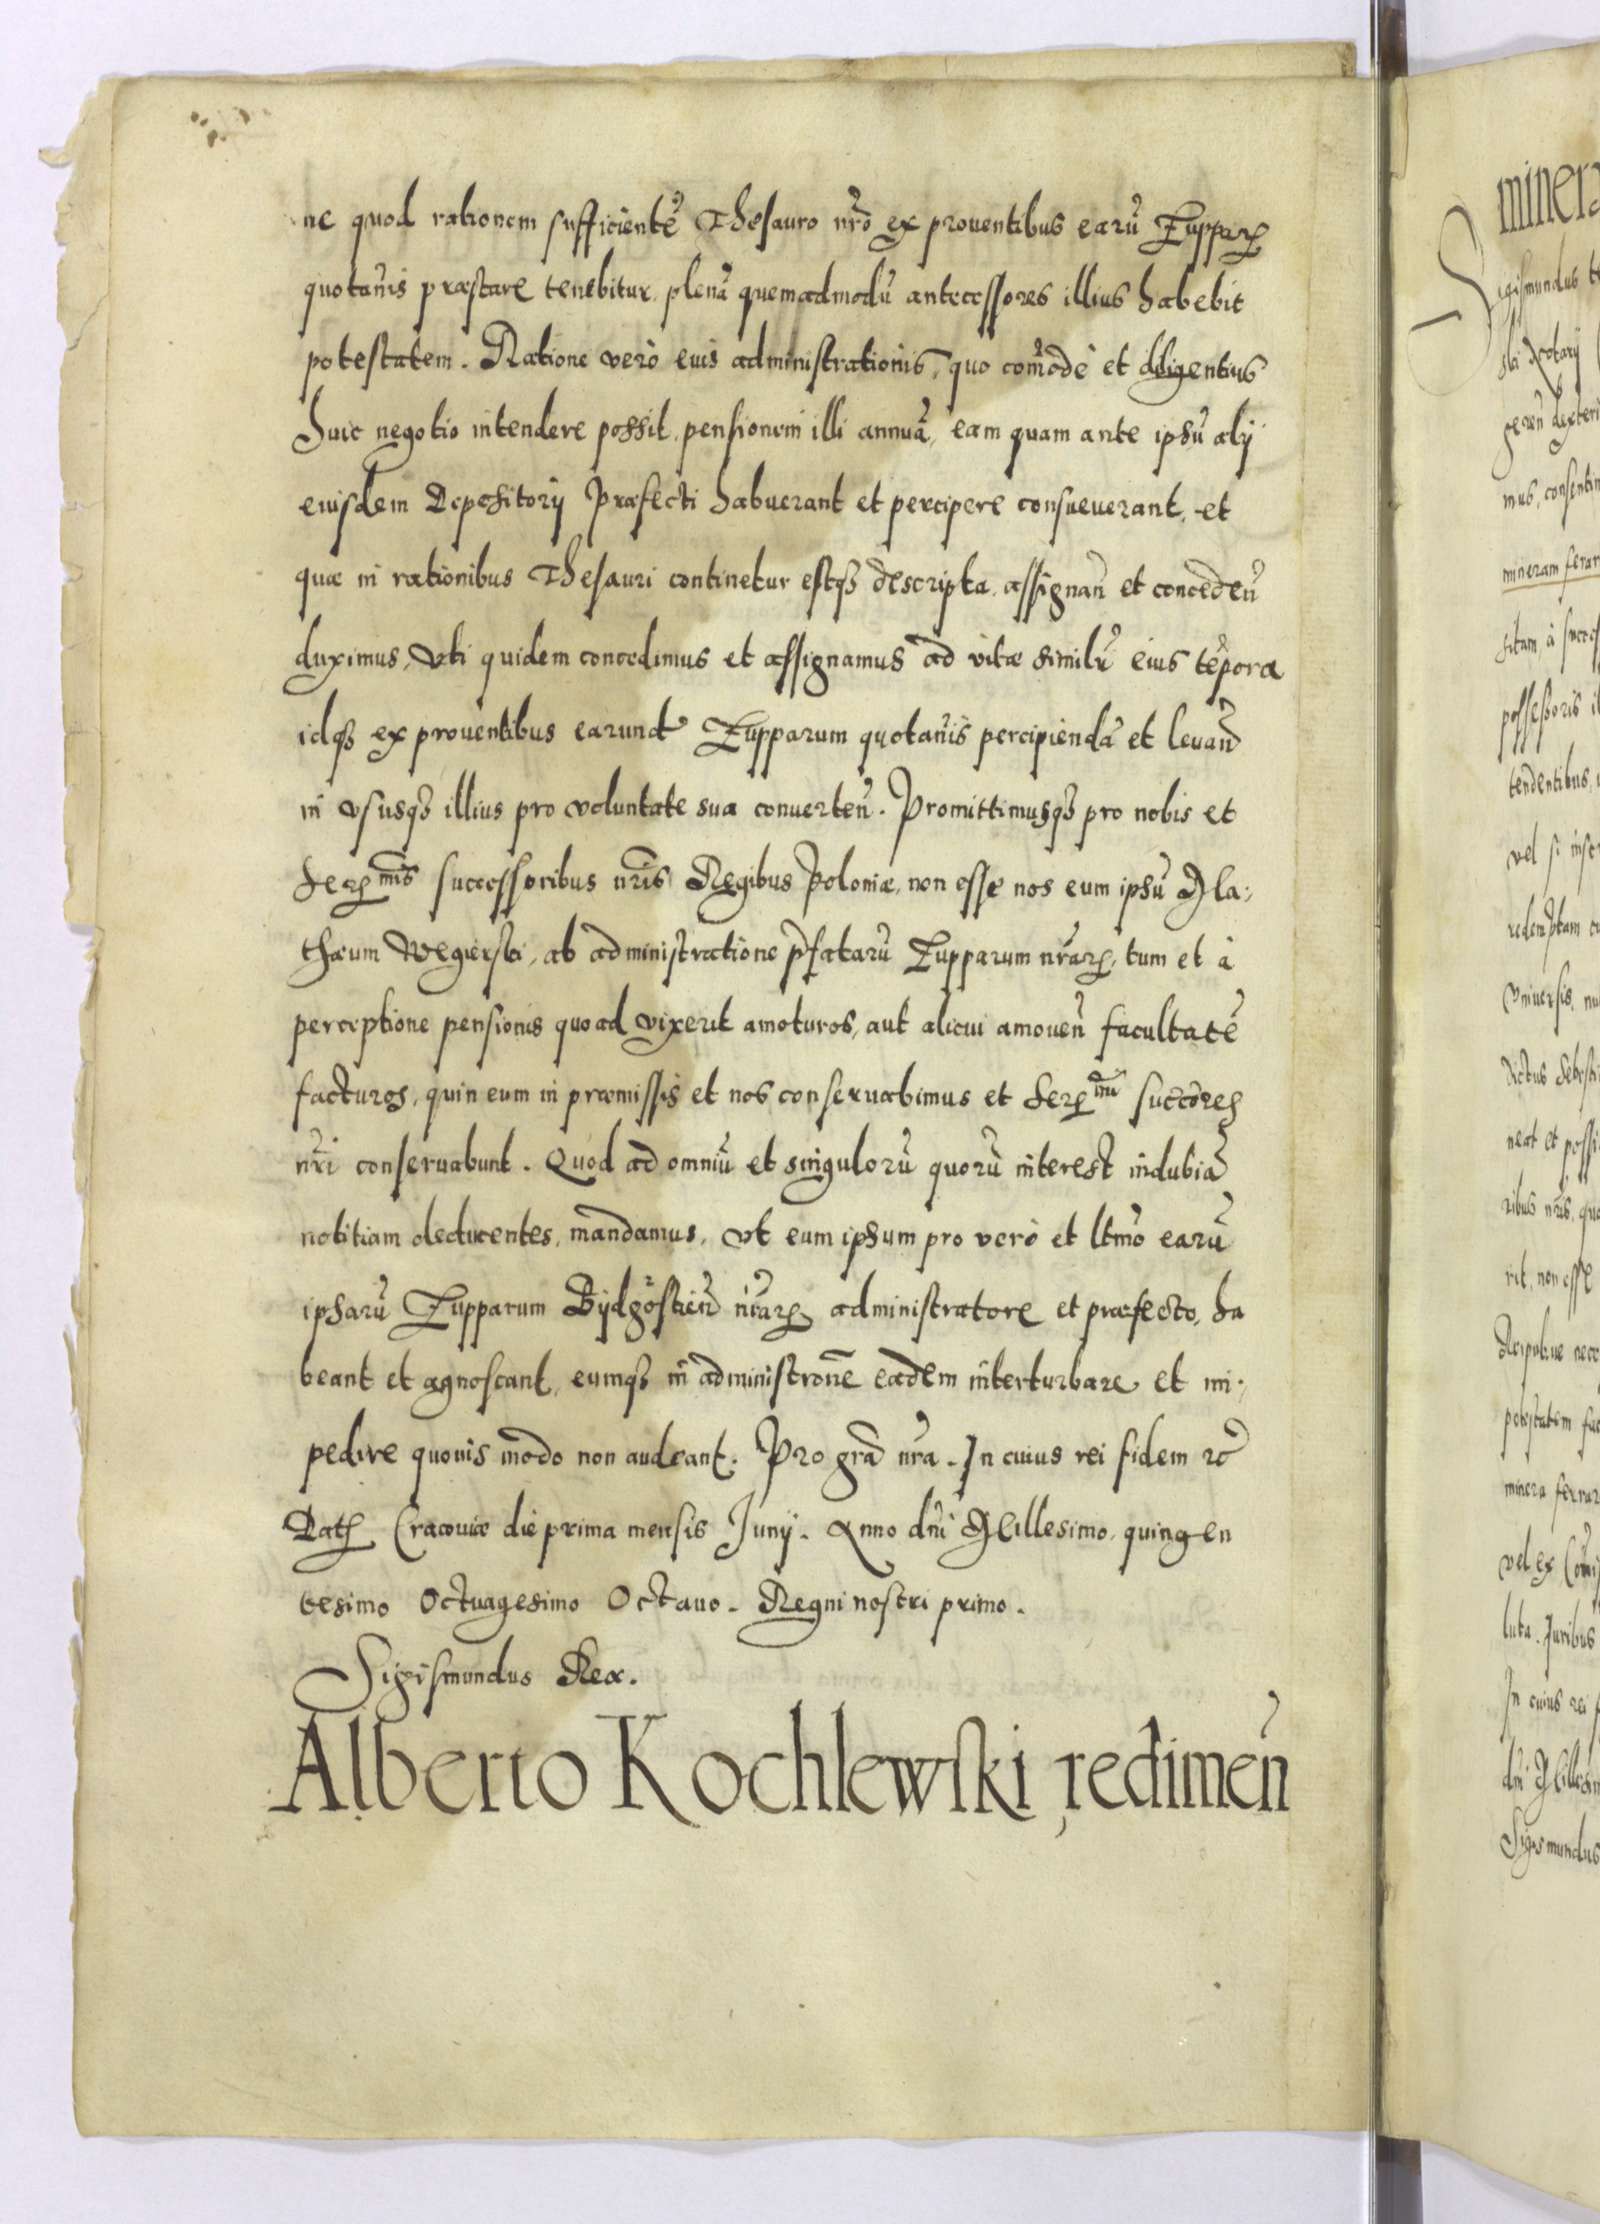 ne quod rationem sufficientẽ Thesauro nr̃o ex prouentibus earũ Zupparꝝ
quotañis præstare tenebitur, plenã quemadmodũ antecessores illius habebit
potestatem. Ratione verò eius administrationis, quo com̃odè et diligentius
huic negotio intendere possit, pensionem illi annuã, eam quam ante ipsũ alij
eiusdem Depositorij Præfecti habuerant et percipere consueuerant, et
quæ in rationibus Thesauri continetur estqꝫ descripta, assignañ et concedeñ
duximus, Vti quidem concedimus et assignamus ad vitæ similr̃ eius tẽpora
idqꝫ ex prouentibus earund Zupparum quotañis percipiendã et leuand̃
in vsusqꝫ illius pro voluntate sua conuerteñ. Promittimusqꝫ pro nobis et
Serꝫmis̃ successoribus nr̃is Regibus Poloniæ, non esse nos eum ipsũ Ma:
thæum Wegierski, ab administratione p̃fatarũ Zupparum nr̃arꝝ, tum et à
perceptione pensionis quoad vixerit amoturos, aut alicui amoueñ facultatẽ
facturos, quin eum in præmissis et nos conseruabimus et Serꝫmĩ succ̃ores
nr̃i conseruabunt. Quod ad omniũ et singulorũ quorũ interest indubiã
notitiam deducentes, mandamus, vt eum ipsum pro verò et ltm̃o earũ
ipsarũ Zupparum Bÿdgostieñ nr̃arꝝ administratore et præfecto, ha
beant et agnoscant, eumqꝫ in administrõne eadem interturbare et im:
pedire quouis modo non audeant. Pro grã nr̃a. In cuius rei fidem ꝛc̃
Datꝫ Cracouiæ die prima mensis Junij. Anno dñi Millesimo, quingen
tesimo Octuagesimo Octauo. Regni nostri primo.
Sigismundus Rex.
Alberto Kochlewski redimeñ
minera
Sigismundus
mus,
mineram ferar
possessoris
tendentibus,
vel si
redemptam
Vniuersis,
neat et
ribus nr̃is,
rit, non esse
potestatem
minera ferrar
vel ex
luta. Juribus
In cuius rei
dñi
Sigismundus